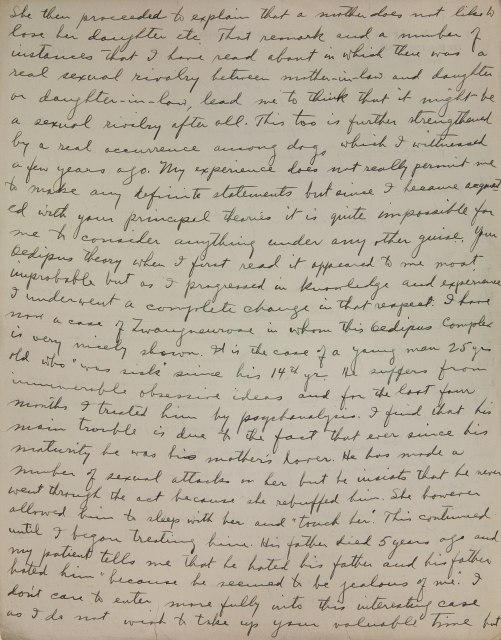 She then proceeded to explain that a mother does not like to
lose her daughter etc. That remark and a number of
instances that I have read about in which there was a
real sexual rivalry between mother-in-law and daughter
or daughter-in-law, lead me to think that it might be
a sexual rivalry after all. This too is further strengthened
by a real occurrence among dogs which I witnessed
a few years ago. My experience does not really permit me
to make any definite statements but since I became acquaint
ed with your principal theories it is quite impossible for
me to consider anything under any other guise. Your
Oedipus theory when I first read it appeared to me most
improbable but as I progressed in knowledge and experience
I underwent a complete change in that respect. I have
now a case of Zwangneurose in whom this Oedipus Complex
is very nicely shown. It is the case of a young man 25 yrs
old who "was sick" since his 14th yr. He suffers from
innumerable obsessive ideas and for the last four
months I treated him by psychanalysis. I find that his
main trouble is due to the fact that ever since his
maturity he was his mother's lover. He has made a
number of sexual attacks on her but he insists that he never
went through the act because she rebuffed him. She however
allowed him to sleep with her and "touch her". This continued
until I began treating him. His father died 5 years ago and
my patient tells me that he hated his father and his father
hated him "because he seemed to be jealous of me." I
don't care to enter more fully into this interesting case
as I do not wish to take up your valuable time but